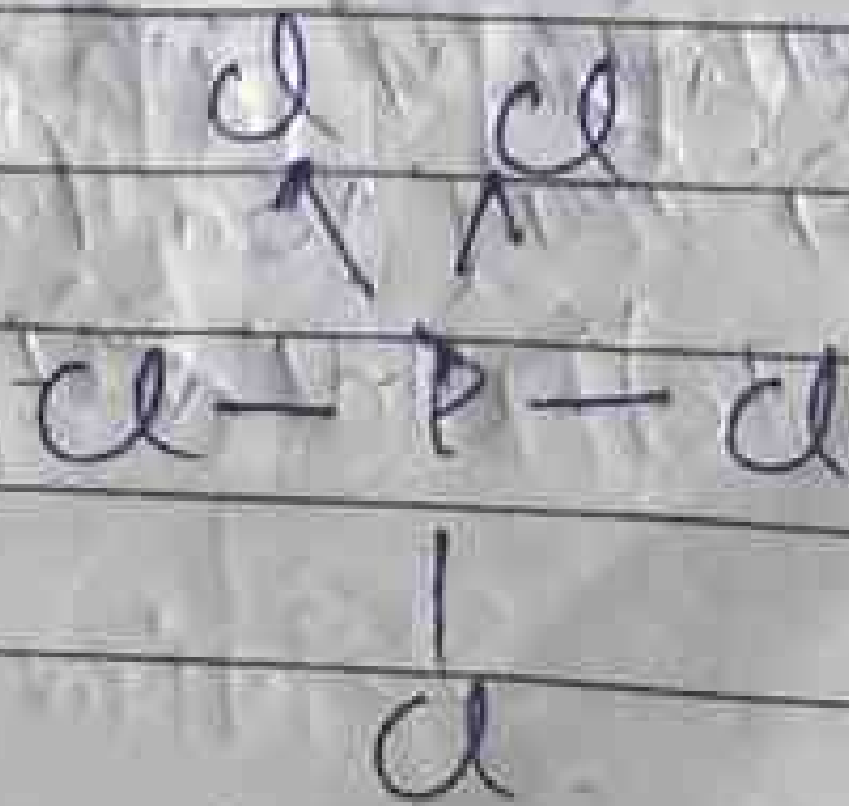 Cl Cl
Cl — P — Cl
Cl